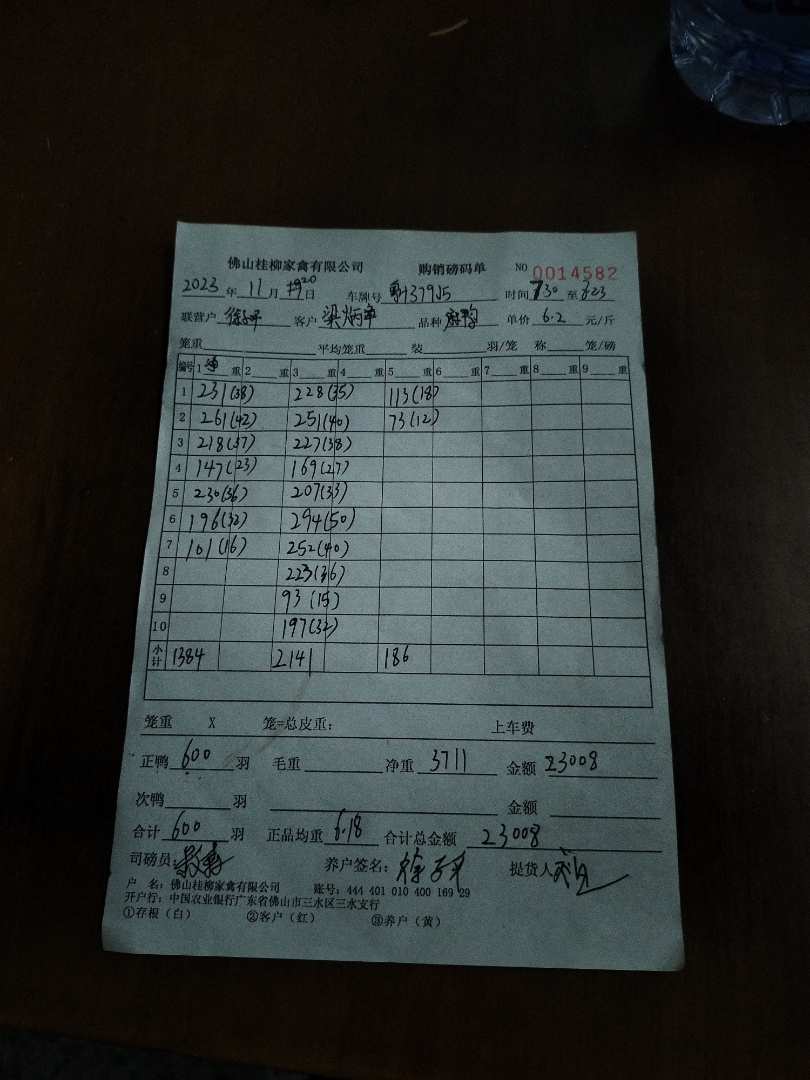 佛山桂柳家禽有限公司 购销磅码单 NO 0014582
2023 年 11 月 20 日 车牌号 37915 时间 7:30 至 8:23
联营户 客户 梁炳 品种 单价 6.2 元/斤
笼重 平均笼重 装 羽/笼 称 笼/磅
编号 1 重 2 重 3 重 4 重 5 重 6 重 7 重 8 重 9 重
1 231(38) 228(35) 113(18)
2 261(42) 251(40) 73(12)
3 218(37) 227(38)
4 147(23) 169(27)
5 230(36) 207(33)
6 196(32) 294(50)
7 101(16) 252(40)
8 223(36)
9 93(15)
10 197(32)
小计 1384 2141 186
笼重 X 笼=总皮重: 上车费
正鸭 600 羽 毛重 净重 3711 金额 23008
次鸭 羽 金额
合计 600 羽 正品均重 6.18 合计总金额 23008
司磅员: 养户签名: 提货人
户 名: 佛山桂柳家禽有限公司 账号: 444 401 010 400 169 29
开户行: 中国农业银行广东省佛山市三水区三水支行
①存根（白） ②客户（红） ③养户（黄）